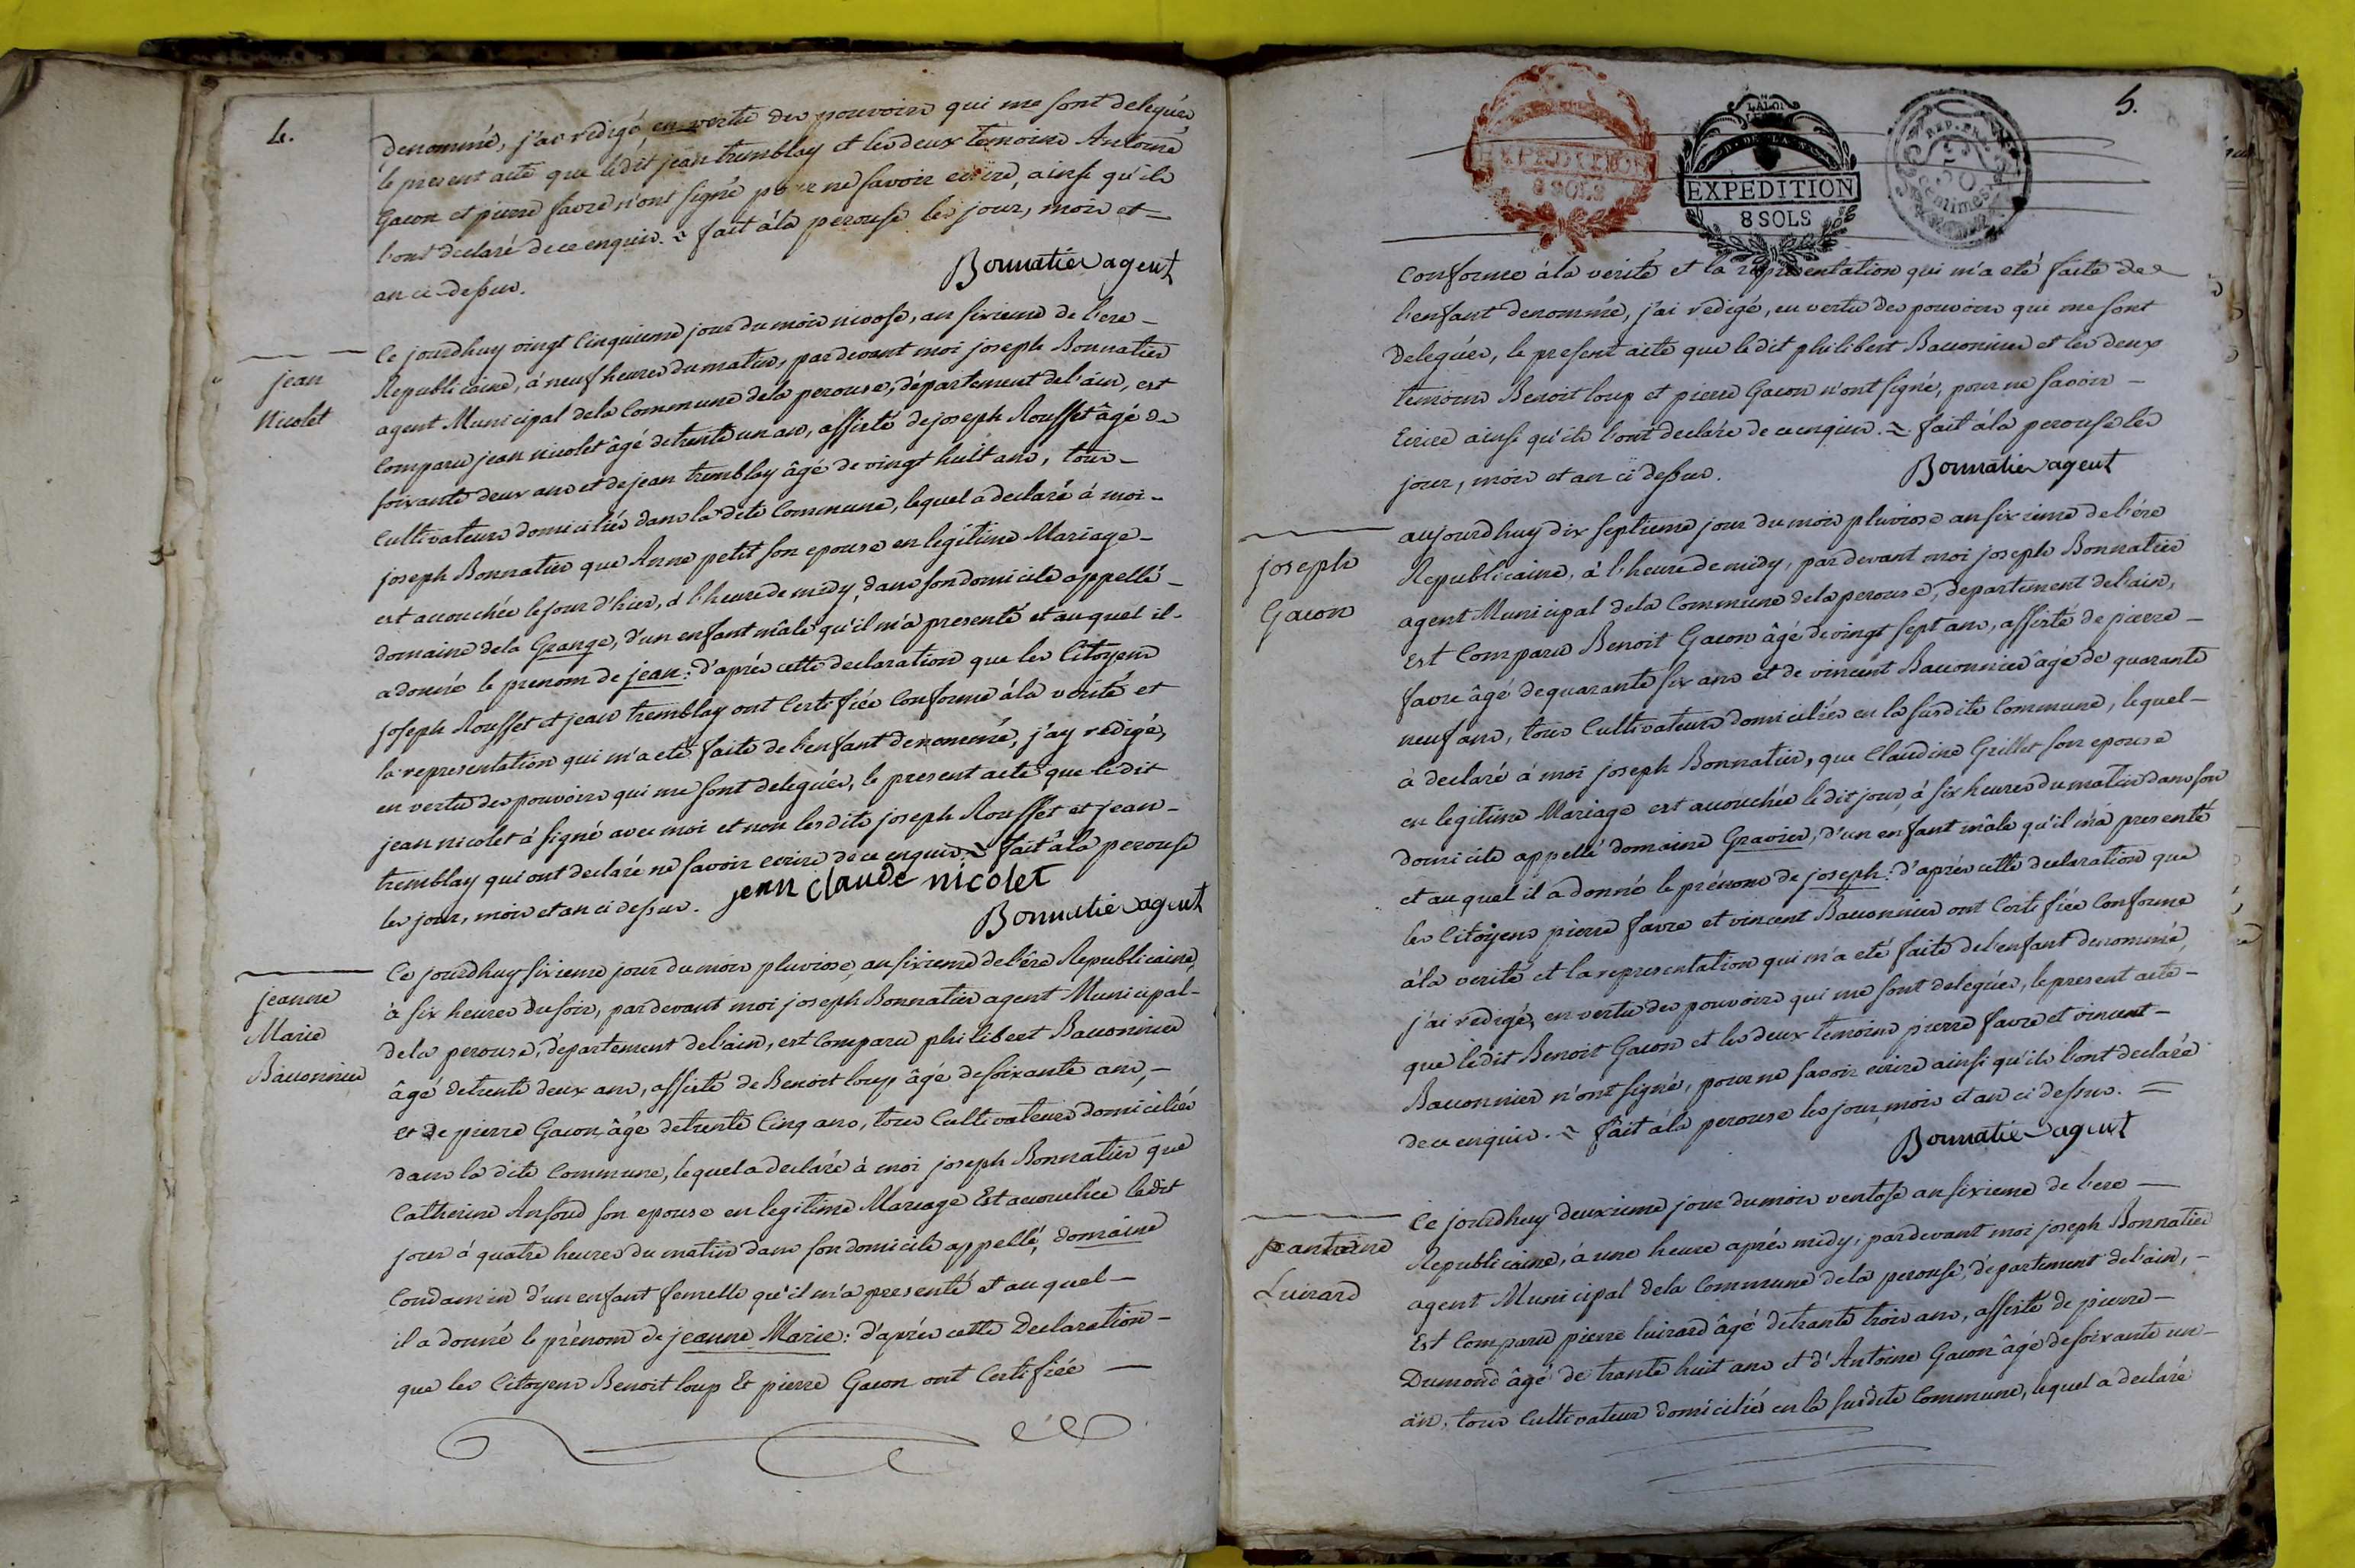 4.
denommé, j'ai redigé, en vertu des pouvoirs qui me sont delegués
le present acte que ledit jean tremblay et les deux temoins Antoine
Gacon et pierre favre n'ont signé pour ne savoir ecrire, ainsi qu'ils
l'ont declaré de ce enquis. ~ fait à la perouse les jour, mois et —
an ci-dessus.
Bonnatier agent
jean
Nicolet
Ce jourdhuy vingt Cinquieme jour du mois nivose, an sixieme de l'ere —
Republicaine, à neuf heures du matin, pardevant moi joseph Bonnatier
agent Municipal de la Commune de la perouse, département de l'ain, est
Comparu jean nicolet âgé de trente un ans, assisté de joseph Rousset âgé de
soixante deux ans et de jean tremblay âgé de vingt huit ans, tous —
Cultivateurs domiciliés dans la dite Commune, lequel a declaré à moi —
joseph Bonnatier que Anne petit son epouse en legitime Mariage —
est accouchée le jour d'hier, à l'heure de midy, dans son domicile appellé —
domaine de la Grange, d'un enfant mâle qu'il m'a presenté et auquel il —
a donné le prenom de jean: d'après cette declaration que les Citoyens
joseph Rousset et jean tremblay ont Certifiée Conforme à la verité et
la representation qui m'a eté faite de l'enfant denommé, j'ay redigé,
en vertu des pouvoirs qui me sont delegués, le present acte que ledit
jean nicolet à signé avec moi et non lesdits joseph Rousset et jean —
tremblay qui ont declaré ne savoir ecrire de ce enquis. ~ fait à la perouse
les jour, mois et an ci dessus. jean claude nicolet
Bonnatier agent
jeanne
Marie
Bauonnier
Ce jourdhuy sixieme jour du mois pluviose, an sixieme de l'ère Republicaine,
à six heures du soir, pardevant moi joseph Bonnatier agent Municipal —
de la perouse, departement de l'ain, est Comparu philibert Bauonnier
âgé de trente deux ans, assisté de Benoit loup âgé de soixante ans, —
et de pierre Gacon âgé de trente Cinq ans, tous Cultivateurs domiciliés
dans la dite Commune, lequel a declaré à moi joseph Bonnatier que
Catherine son epouse en legitime Mariage Est accouchée ledit
jour à quatre heures du matin dans son domicile appellé, domaine
Condamin d'un enfant femelle qu'il m'a presenté et auquel —
il a donné le prènom de jeanne Marie: d'après cette Declaration —
que les Citoyens Benoit loup Et pierre Gacon ont Certifiée —
5.
LA LOI
EXPEDITION
8 SOLS
EXPEDITION
8 SOLS
REP. FRA.
50
centimes
Conforme à la verité et la representation qui m'a eté faite de
l'enfant denommé, j'ai redigé, en vertu des pouvoirs qui me sont
Delegués, le present acte que ledit philibert Bauonnier et les deux
temoins Benoit loup et pierre Gacon n'ont signé, pour ne savoir —
Ecrire ainsi qu'ils l'ont declaré de ce enquis. ~ fait à la perouse les
jour, mois et an ci dessus. Bonnatier agent
joseph
Gacon
aujourdhuy dix septieme jour du mois pluviose an sixieme de l'ére
Republicaine, à l'heure de midy, pardevant moi joseph Bonnatier
agent Municipal de la Commune de la perouse, departement de l'ain,
Est Comparu Benoit Gacon âgé de vingt sept ans, assisté de pierre —
favre âgé de quarante six ans et de vincent Bauonnier âgé de quarante
neuf ans, tous Cultivateurs domiciliés en la susdite Commune, lequel —
à declaré à moi joseph Bonnatier, que Claudine Grillet son epouse
en legitime Mariage est accouchée ledit jour, à six heures du matin dans son
domicile appellé domaine Gravier, d'un enfant mâle qu'il m'a presenté
et auquel il a donné le prénom de joseph: d'après cette declaration que
les Citoyens pierre favre et vincent Bauonnier ont Certifiée Conforme
à la verité et la representation qui m'a eté faite de l'enfant denommé,
j'ai redigé, en vertu des pouvoirs qui me sont delegués, le present acte —
que ledit Benoit Gacon et les deux temoins pierre favre et vincent —
Bauonnier n'ont signé, pour ne savoir ecrire ainsi qu'ils l'ont declaré
de ce enquis. ~ fait à la perouse les jour, mois et an ci dessus. =
Bonnatier agent
Luirard
Ce jourdhuy deuxieme jour du mois ventose an sixieme de l'ere —
Republicaine, à une heure après midy, pardevant moi joseph Bonnatier
agent Municipal de la Commune de la perouse, departement de l'ain, —
Est Comparu pierre luirard âgé de trante trois ans, assisté de pierre —
Dumond âgé de trante huit ans et d'Antoine Gacon âgé de soixante un —
an, tous Cultivateurs domiciliés en la susdite Commune, lequel a declaré